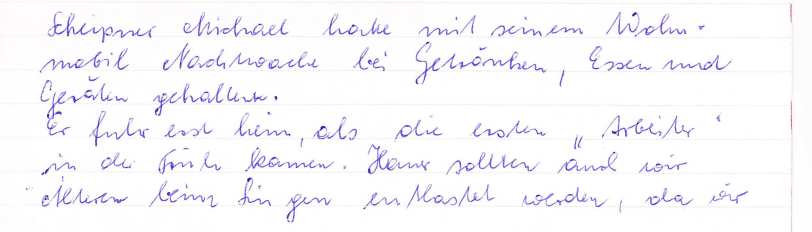 Scheipner Michael hatte mit seinem Wohn-
mobil Nachtwache bei Getränken, Essen und
Geräten gehalten.
Er fuhr erst heim, als die ersten „Arbeiter"
in der Früh kamen. Heuer sollten auch wir
Älteren beim Singen entlastet werden, da wir